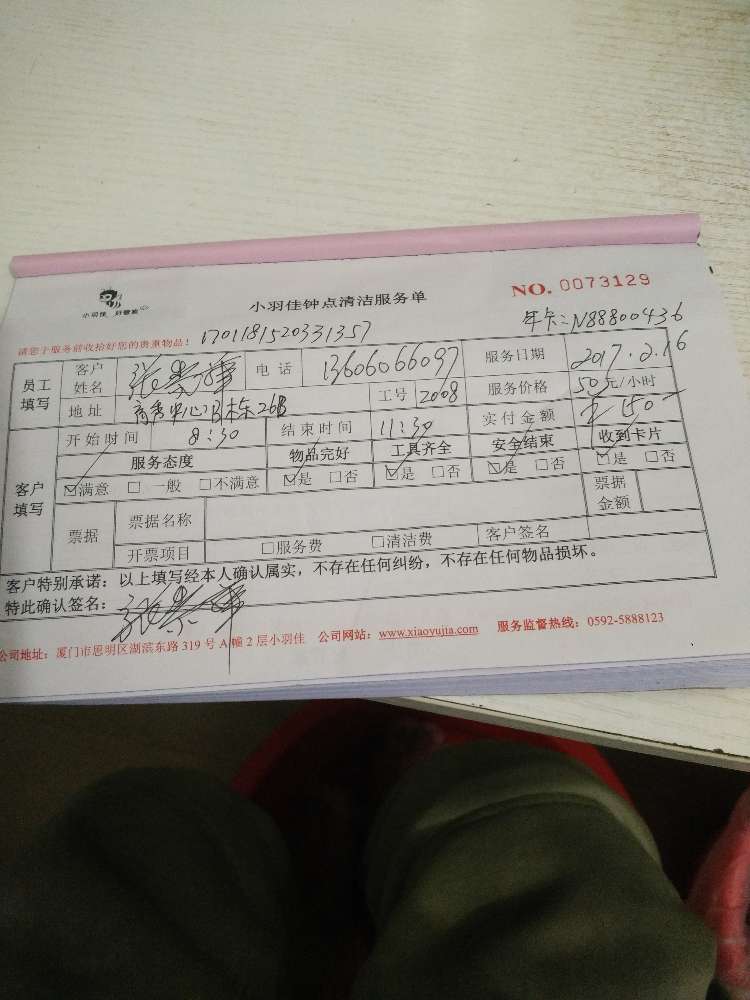 小羽佳 好管家
小羽佳钟点清洁服务单
NO. 0073129
请您于服务前收拾好您的贵重物品!
1701181520331357
年卡:N88800436
员工填写
客户姓名
电话 13606066097
服务日期 2017.2.16
地址
工号 2008
服务价格 50元/小时
客户填写
开始时间 8:30
结束时间 11:30
实付金额 150
服务态度 物品完好 工具齐全 安全结束 收到卡片
☑满意 □一般 □不满意 ☑是 □否 ☑是 □否 ☑是 □否 ☑是 □否
票据
票据名称
票据金额
开票项目 □服务费 □清洁费 客户签名
客户特别承诺:以上填写经本人确认属实,不存在任何纠纷,不存在任何物品损坏。
特此确认签名:
公司地址:厦门市思明区湖滨东路319号A幢2层小羽佳 公司网站:www.xiaoyujia.com 服务监督热线:0592-5888123